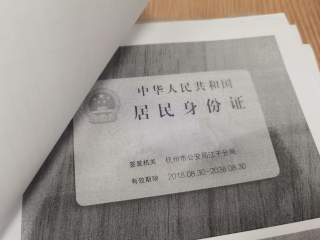 中华人民共和国
居民身份证
签发机关 杭州市公安局江干分局
有效期限 2018.08.30-2038.08.30